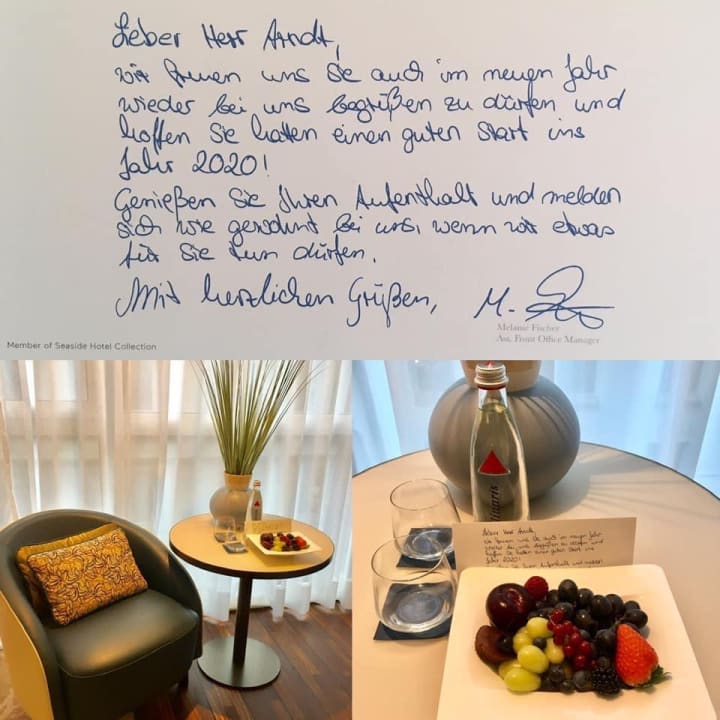 Lieber Herr Arndt,
wir freuen uns Sie auch im neuen Jahr
wieder bei uns begrüßen zu dürfen und
hoffen Sie hatten einen guten Start ins
Jahr 2020!
Genießen Sie Ihren Aufenthalt und melden
sich wie gewohnt bei uns, wenn wir etwas
für Sie tun dürfen.
Mit herzlichen Grüßen, M.
Melanie Fischer
Ass. Front Office Manager
Member of Seaside Hotel Collection
Lieber Herr Arndt,
wir freuen uns Sie auch im neuen Jahr
wieder bei uns begrüßen zu dürfen und
hoffen Sie hatten einen guten Start ins
Jahr 2020!
Sie Ihren Aufenthalt und melden